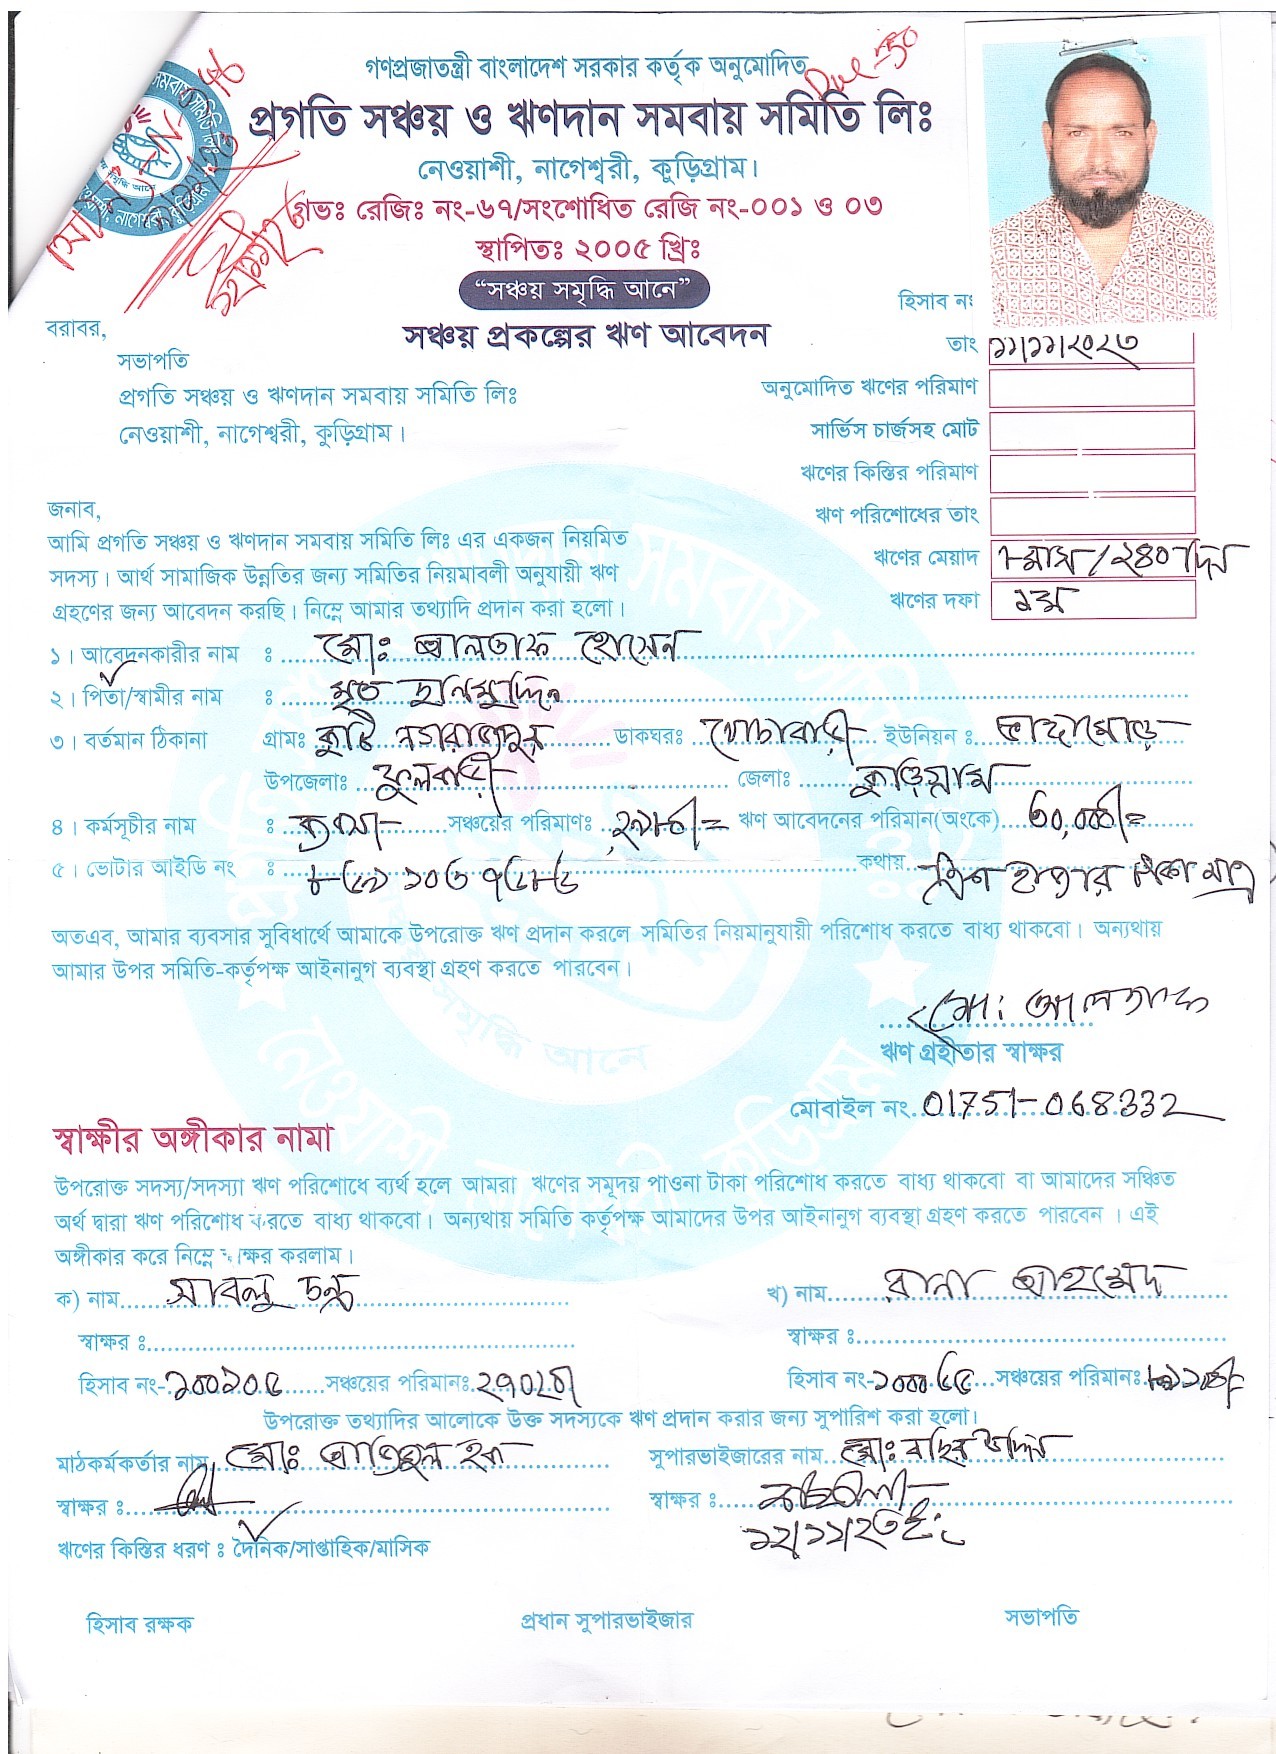 গণপ্রজাতন্ত্রী বাংলাদেশ সরকার কর্তৃক অনুমোদিত
Due-30
প্রগতি সঞ্চয় ও ঋণদান সমবায় সমিতি লিঃ
নেওয়াশী, নাগেশ্বরী, কুড়িগ্রাম।
গভঃ রেজিঃ নং-৬৭/সংশোধিত রেজি নং-০০১ ও ০৩
স্থাপিতঃ ২০০৫ খ্রিঃ
“সঞ্চয় সমৃদ্ধি আনে”
হিসাব নং
বরাবর,
সঞ্চয় প্রকল্পের ঋণ আবেদন
তাং ১১/১১/২০২৩
সভাপতি
প্রগতি সঞ্চয় ও ঋণদান সমবায় সমিতি লিঃ
নেওয়াশী, নাগেশ্বরী, কুড়িগ্রাম।
অনুমোদিত ঋণের পরিমাণ
সার্ভিস চার্জসহ মোট
ঋণের কিস্তির পরিমাণ
ঋণ পরিশোধের তাং
ঋণের মেয়াদ ৮মাস/২৪০দিন
ঋণের দফা ১ম
জনাব,
আমি প্রগতি সঞ্চয় ও ঋণদান সমবায় সমিতি লিঃ এর একজন নিয়মিত
সদস্য। আর্থ সামাজিক উন্নতির জন্য সমিতির নিয়মাবলী অনুযায়ী ঋণ
গ্রহণের জন্য আবেদন করছি। নিম্নে আমার তথ্যাদি প্রদান করা হলো।
১। আবেদনকারীর নাম : মোঃ আলতাফ হোসেন
২। পিতা/স্বামীর নাম : মৃত
৩। বর্তমান ঠিকানা গ্রামঃ কুটি ডাকঘরঃ ইউনিয়ন : ভাঙ্গামোড়
উপজেলাঃ ফুলবাড়ী জেলাঃ কুড়িগ্রাম
৪। কর্মসূচীর নাম : সঞ্চয়ের পরিমাণঃ ঋণ আবেদনের পরিমান(অংকে) ৩০,০০০/=
৫। ভোটার আইডি নং : কথায় ত্রিশ হাজার টাকা মাত্র
অতএব, আমার ব্যবসার সুবিধার্থে আমাকে উপরোক্ত ঋণ প্রদান করলে সমিতির নিয়মানুযায়ী পরিশোধ করতে বাধ্য থাকবো। অন্যথায়
আমার উপর সমিতি-কর্তৃপক্ষ আইনানুগ ব্যবস্থা গ্রহণ করতে পারবেন।
মো: আলতাফ
ঋণ গ্রহীতার স্বাক্ষর
মোবাইল নং. 01751-068332
স্বাক্ষীর অঙ্গীকার নামা
উপরোক্ত সদস্য/সদস্যা ঋণ পরিশোধে ব্যর্থ হলে আমরা ঋণের সমূদয় পাওনা টাকা পরিশোধ করতে বাধ্য থাকবো বা আমাদের সঞ্চিত
অর্থ দ্বারা ঋণ পরিশোধ করতে বাধ্য থাকবো। অন্যথায় সমিতি কর্তৃপক্ষ আমাদের উপর আইনানুগ ব্যবস্থা গ্রহণ করতে পারবেন । এই
অঙ্গীকার করে নিম্নে স্বাক্ষর করলাম।
ক) নাম সাবলু চন্দ্র খ) নাম রানা আহমেদ
স্বাক্ষর : স্বাক্ষর :
হিসাব নং-১০০১০৫ সঞ্চয়ের পরিমানঃ হিসাব নং-১০০০৬৫ সঞ্চয়ের পরিমানঃ
উপরোক্ত তথ্যাদির আলোকে উক্ত সদস্যকে ঋণ প্রদান করার জন্য সুপারিশ করা হলো।
মাঠকর্মকর্তার নাম মোঃ হক সুপারভাইজারের নাম মোঃ বছির উদ্দিন
স্বাক্ষর : স্বাক্ষর :
১২/১১/২৩ইং
ঋণের কিস্তির ধরণ : দৈনিক/সাপ্তাহিক/মাসিক
হিসাব রক্ষক প্রধান সুপারভাইজার সভাপতি